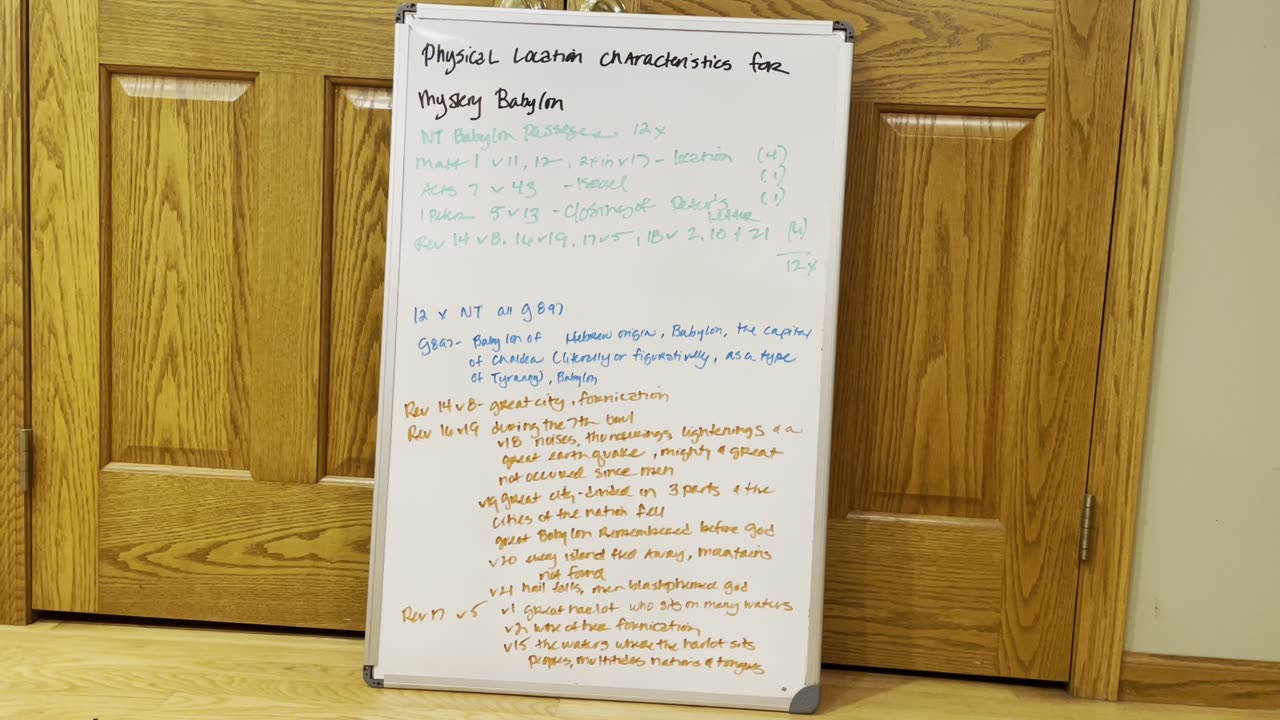 Physical Location Characteristics for
Mystery Babylon
NT Babylon Passages 12x
Matt 1 v 11, 12, 2x in v 17 - location (4)
Acts 7 v 43 - Israel (1)
1 Peter 5 v 13 - closing of Peter's Letter (1)
Rev 14 v 8, 16 v 19, 17 v 5, 18 v 2, 10 & 21
12x
12 x NT all g897
g897- Babylon of Hebrew origin, Babylon, the capital
of Chaldea (literally or figuratively, as a type
of Tyranny), Babylon
Rev 14 v 8- great city, fornication
Rev 16 v 19 during the 7th bowl
v18 noises, thunderings, lightenings & a
great earthquake, mighty & great
not occured since men
v19 great city-divided in 3 parts & the
cities of the nation fell
great Babylon Remembered before god
v20 every island fled away, mountains
not found
v21 hail falls, men blasphemed god
Rev 17 v 5 v1 great harlot who sits on many waters
v2 wine of her fornication
v15 the waters where the harlot sits
peoples, multitudes nations & tongues